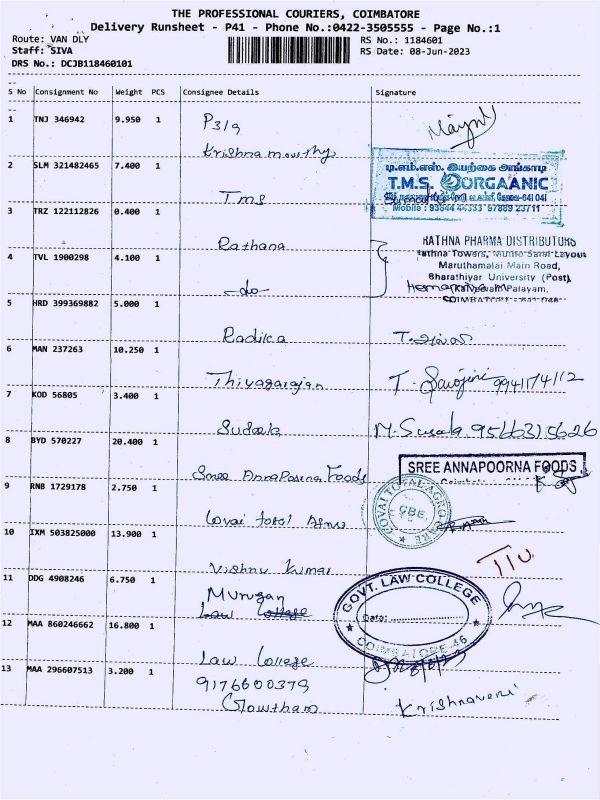 THE PROFESSIONAL COURIERS, COIMBATORE
Delivery Runsheet - P41 - Phone No.:0422-3505555 - Page No.:1
Route: VAN DLY RS No.: 1184601
Staff: SIVA RS Date: 08-Jun-2023
DRS No.: DCJB118460101
S No Consignment No Weight PCS Consignee Details Signature
1 TNJ 346942 9.950 1 P319
Krishna moorthy
2 SLM 321482465 7.400 1
டி.எம்.எஸ். இயற்கை அங்காடி
T.M.S. ORGAANIC
Tms
Mobile : 93644 44333 97889 23711
3 TRZ 122112826 0.400 1
Rathana
RATHNA PHARMA DISTRIBUTORS
Rathna Towers,
Maruthamalai Main Road,
4 TVL 1900298 4.100 1
Bharathiyar University (Post),
-do-
COIMBATORE
5 HRD 399369882 5.000 1
Radika
6 MAN 237263 10.250 1
Thiyagarajan T. Sarojini 9941174112
7 KOD 56805 3.400 1
M. Susala 9566315626
8 BYD 570227 20.400 1
Sree Annaporna Foods
SREE ANNAPOORNA FOODS
9 RNB 1729178 2.750 1
COVAI TOTAL AGRO
CBE
Covai total Agro
10 IXM 503825000 13.900 1
Vishnu Kumar
11 DDG 4908246 6.750 1
Murugan
Law College
GOVT. LAW COLLEGE
Date:
COIMBATORE-46
12 MAA 860246662 16.800 1
Law College
13 MAA 296607513 3.200 1
9176600379
Gowtham
Krishnaveni